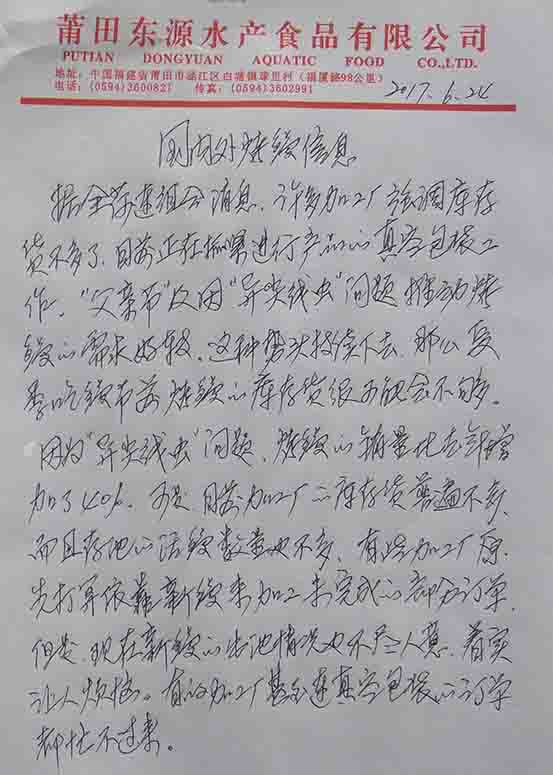 莆田东源水产食品有限公司
PUTIAN DONGYUAN AQUATIC FOOD CO.,LTD.
地址:中国福建省莆田市涵江区白塘镇埭里村(福厦路98公里)
电话:(0594)3600827 传真:(0594)3602991
2017.6.24
国内外烤鳗信息
据全莎速组合消息,许多加工厂强调库存
货不多了,目前正在抓紧进行产品的真空包装工
作。"父亲节"以因"异尖线虫"问题推动烤
鳗的需求好转。这种势头持续下去,那么夏
季吃鳗节前烤鳗的库存货很可能会不够。
因为"异尖线虫"问题,烤鳗的销量比去年增
加了40%。可是,目前加工厂的库存货普遍不多,
而且存池的活鳗数量也不多,有些加工厂原
先打算依靠新鳗来加工来完成的部分订单,
但是,现在新鳗的出池情况也不尽人意,着实
让人烦恼。有的加工厂甚至连真空包装的订单
都忙不过来。